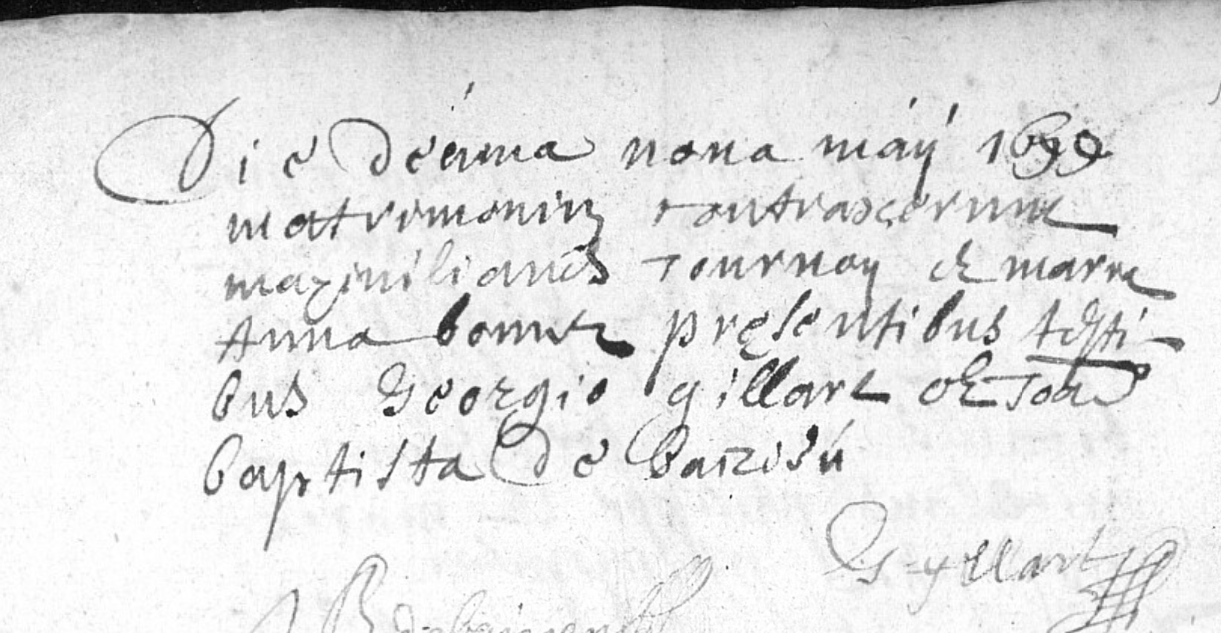 Die decima nona maÿ 1699
matrimoniu contraxerunt
maximilianus Tournay et marie
Anna bonnet presentibus testi-
bus Georgio gillart et Joa
baptista de
G gyllart